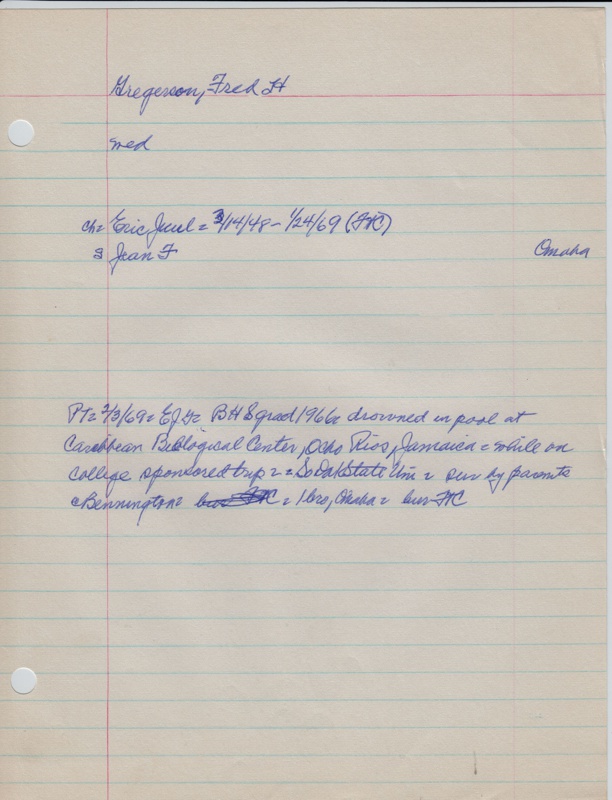 Gregerson, Fred H
med
ch= Eric Juul = 3/14/48 - 1/24/69 (FHC)
Jean F Omaha
PT= 2/3/69= EJG= BHS grad 1966= drowned in pool at
Caribbean Biological Center, Ocho Rios, Jamaica = while on
college sponsored trip = = So Dak State Uni = surv by parents
Bennington= = 1 bro, Omaha = bur FHC